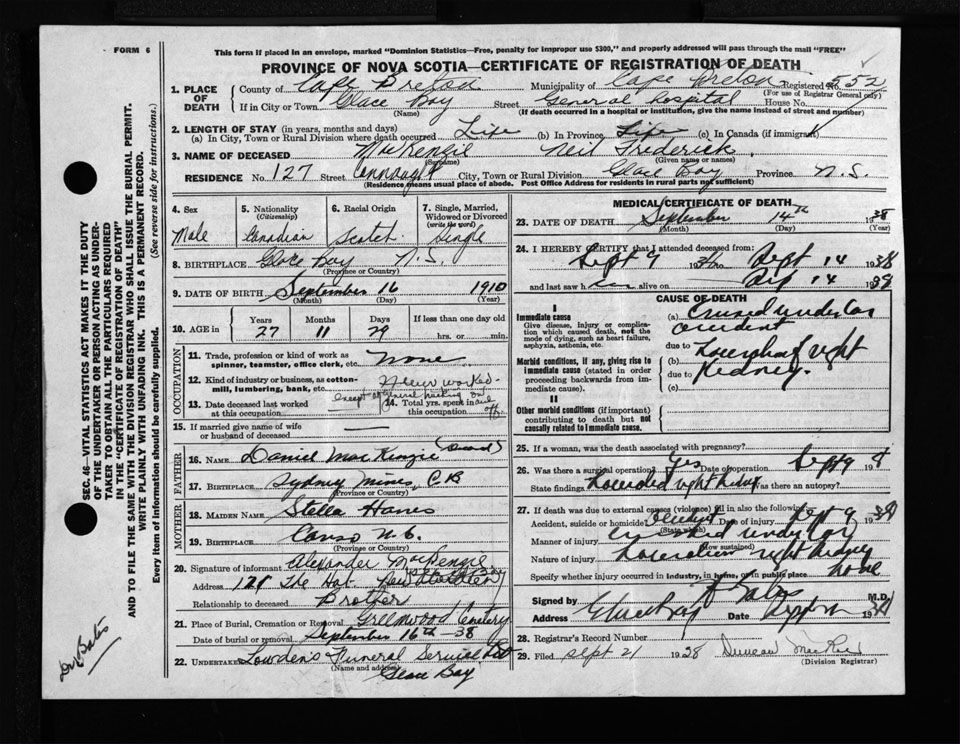 FORM 6
This form if placed in an envelope, marked "Dominion Statistics—Free, penalty for improper use $300," and properly addressed will pass through the mail "FREE"
PROVINCE OF NOVA SCOTIA—CERTIFICATE OF REGISTRATION OF DEATH
1. PLACE OF DEATH County of Cape Breton Municipality of Cape Breton Registered No. 552
(For use of Registrar General only)
If in City or Town Glace Bay Street General Hospital House No.
(Name) (If death occurred in a hospital or institution, give the name instead of street and number)
2. LENGTH OF STAY (in years, months and days)
(a) In City, Town or Rural Division where death occurred Life (b) In Province Life (c) In Canada (if immigrant)
3. NAME OF DECEASED MacKenzie Neil Frederick
(Surname) (Given name or names)
RESIDENCE No. 127 Street City, Town or Rural Division Glace Bay Province N.S.
(Residence means usual place of abode. Post Office Address for residents in rural parts not sufficient)
4. Sex 5. Nationality (Citizenship) 6. Racial Origin 7. Single, Married, Widowed or Divorced (write the word)
Male Canadian Scotch Single
8. BIRTHPLACE Glace Bay N.S.
(Province or Country)
9. DATE OF BIRTH September 16 1910
(Month) (Day) (Year)
10. AGE in Years Months Days If less than one day old
27 11 29 hrs. or min.
OCCUPATION
11. Trade, profession or kind of work as spinner, teamster, office clerk, etc. None
12. Kind of industry or business, as cotton-mill, lumbering, bank, etc. Never worked
13. Date deceased last worked at this occupation except 14. Total yrs. spent in this occupation
15. If married give name of wife or husband of deceased
FATHER
16. NAME Daniel MacKenzie (Dead)
17. BIRTHPLACE Sydney Mines, C.B
(Province or Country)
MOTHER
18. MAIDEN NAME Stella
19. BIRTHPLACE Canso N.S.
(Province or Country)
20. Signature of informant Alexander McKenzie
Address 121 The
Relationship to deceased Brother
21. Place of Burial, Cremation or Removal Greenwood Cemetery
Date of burial or removal September 16th - 38
22. UNDERTAKER Lowden's Funeral Service Ltd
(Name and address) Glace Bay
MEDICAL CERTIFICATE OF DEATH
23. DATE OF DEATH September 14th 1938
(Month) (Day) (Year)
24. I HEREBY CERTIFY that I attended deceased from:
Sept 9 to Sept 14 1938
and last saw h alive on 14 1938
CAUSE OF DEATH
I
Immediate cause
Give disease, injury or complication which caused death, not the mode of dying, such as heart failure, asphyxia, asthenia, etc.
(a) under car accident
due to
Morbid conditions, if any, giving rise to immediate cause (stated in order proceeding backwards from immediate cause).
(b) right Kidney.
due to
(c)
II
Other morbid conditions (if important) contributing to death but not causally related to immediate cause.
25. If a woman, was the death associated with pregnancy?
26. Was there a surgical operation? Yes Date of operation Sept 9
State findings right kidney Was there an autopsy?
27. If death was due to external causes (violence) fill in also the following:
Accident, suicide or homicide? Accident Date of injury Sept 9 1938
(State which)
Manner of injury under car
(How sustained)
Nature of injury right kidney
Specify whether injury occurred in industry, in home, or in public place home
Signed by M.D.
Address Glace Bay Date
28. Registrar's Record Number
29. Filed Sept 21 1938 Duncan
(Division Registrar)
SEC. 46—VITAL STATISTICS ACT MAKES IT THE DUTY
OF THE UNDERTAKER OR PERSON ACTING AS UNDER-
TAKER TO OBTAIN ALL THE PARTICULARS REQUIRED
IN THE "CERTIFICATE OF REGISTRATION OF DEATH"
AND TO FILE THE SAME WITH THE DIVISION REGISTRAR WHO SHALL ISSUE THE BURIAL PERMIT.
WRITE PLAINLY WITH UNFADING INK. THIS IS A PERMANENT RECORD.
Every item of information should be carefully supplied. (See reverse side for instructions.)
Dr Bates